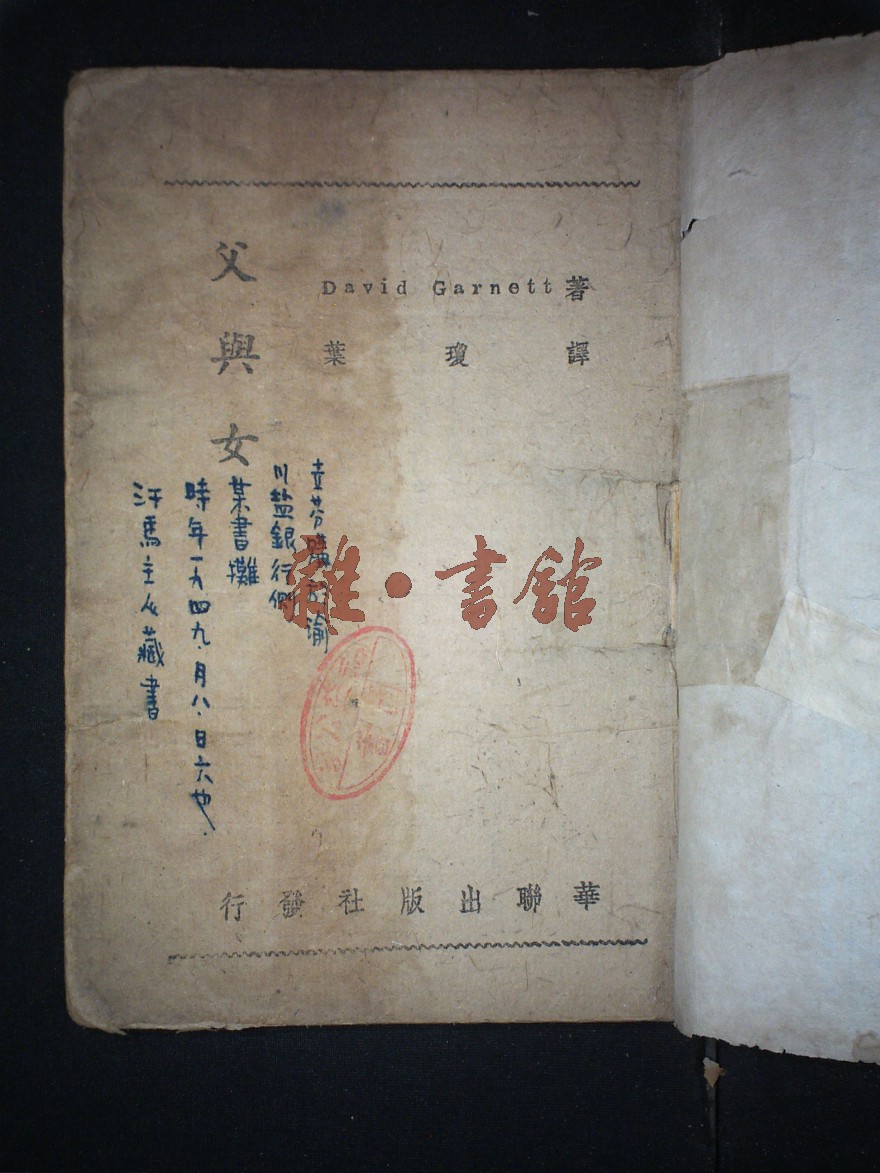 父與女
David Garnett 著
葉瓊譯
川盐銀行側
某書攤
時年一九四九·月八·日六也·
汗馬主人藏書
雜·書館
華聯出版社發行